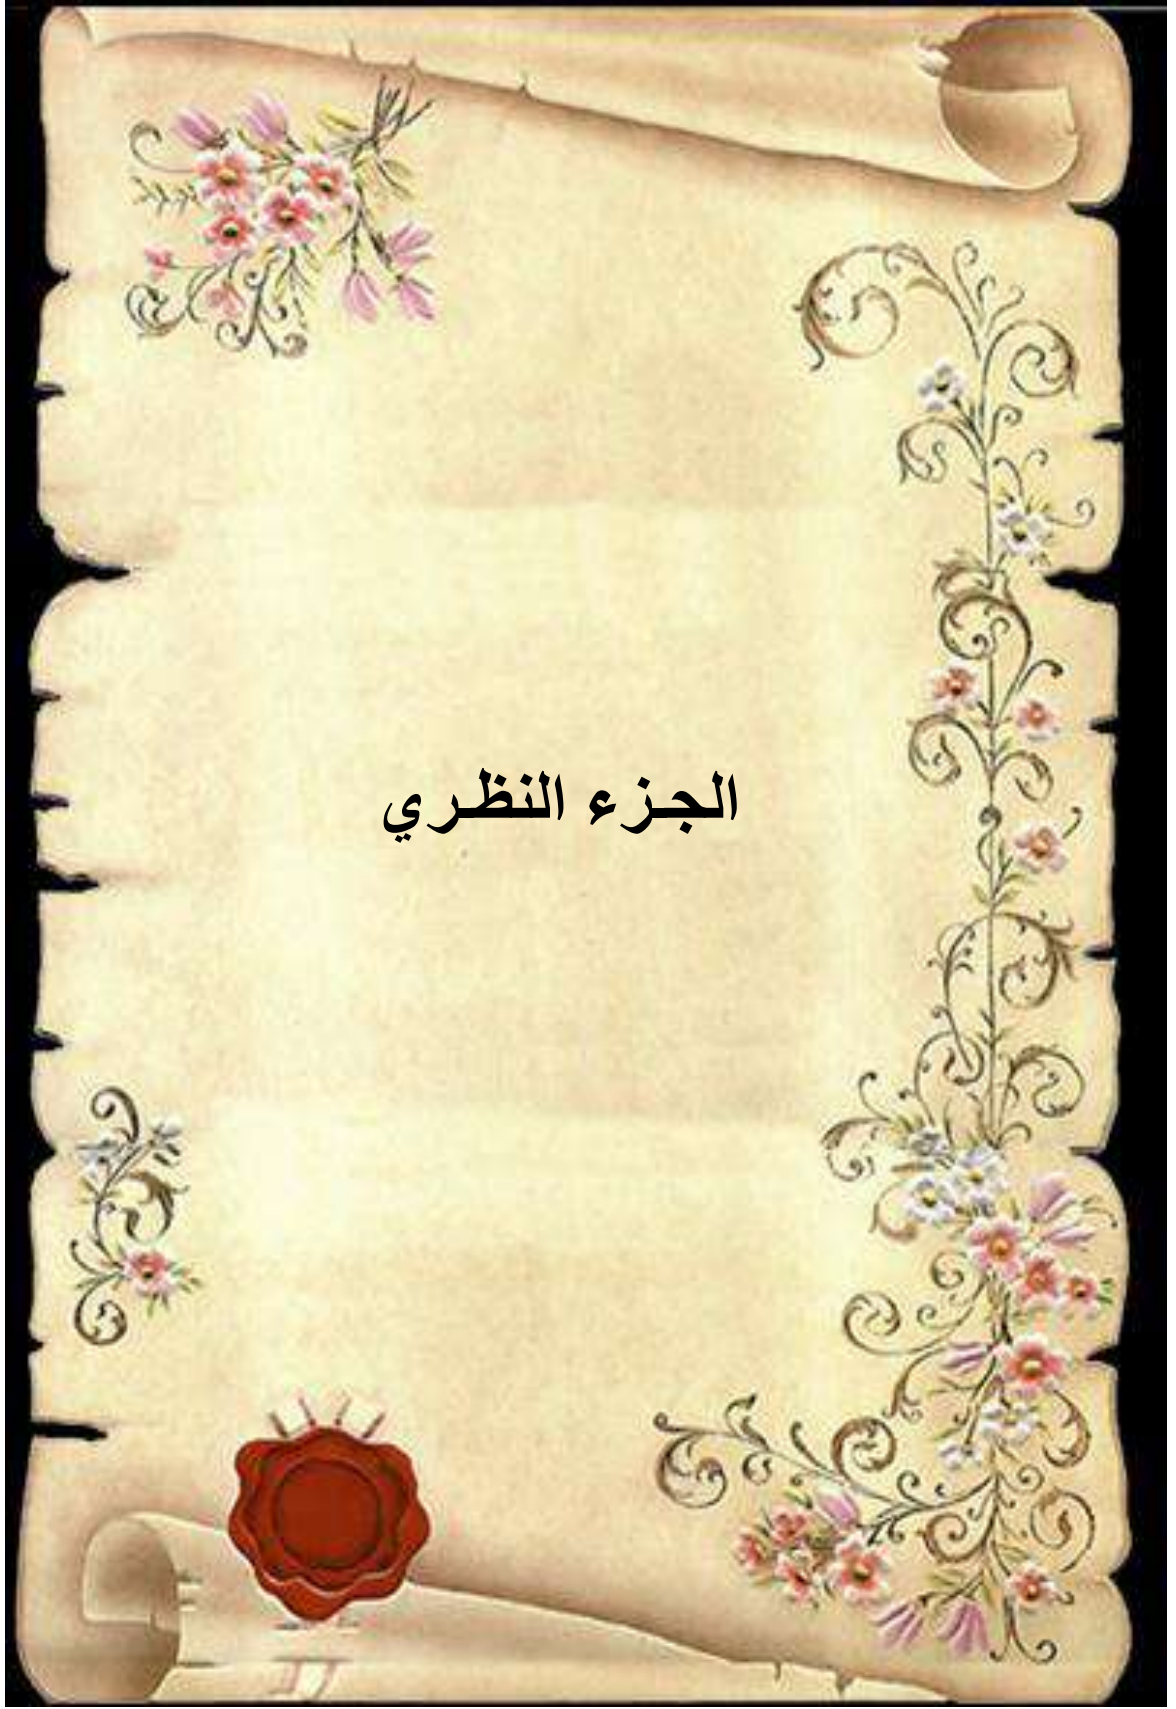 الجزء النظري